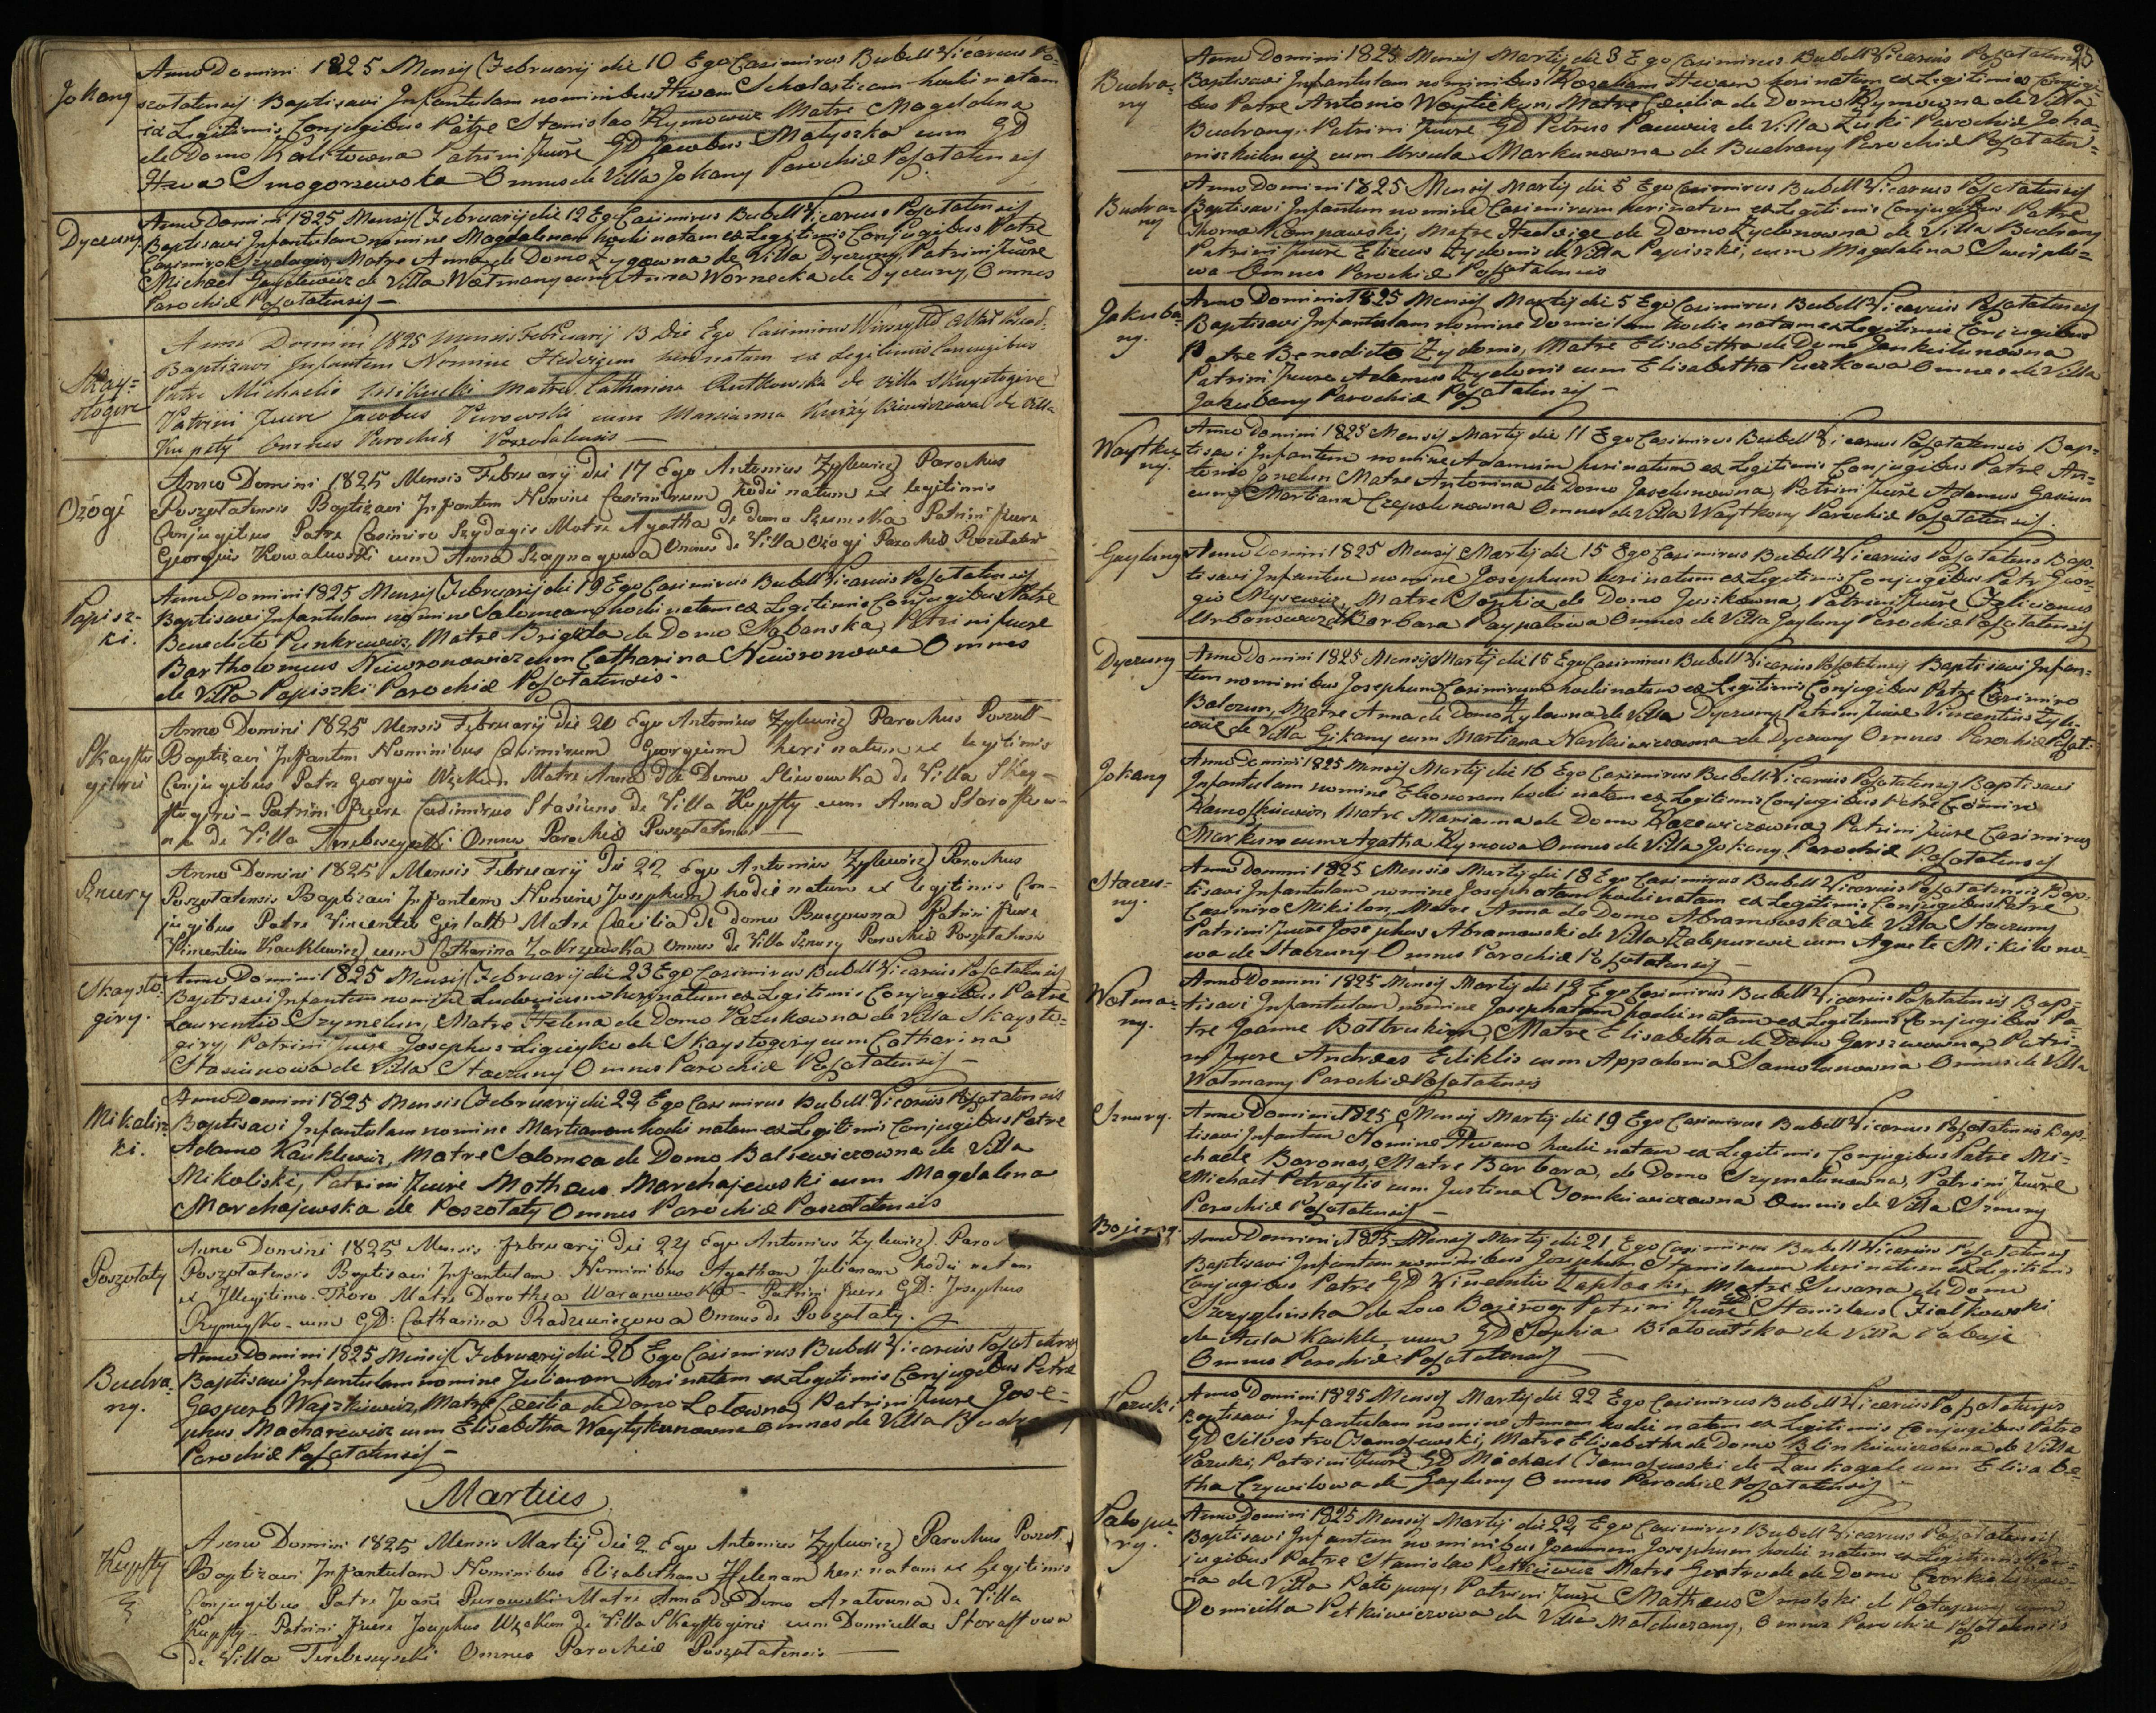 Jokany
Anno Domini 1825 Mensis Februarij die 10 Ego Casimirus Bubell Vicarius Po=
szotatensis Baptisavi Infantulam nominibus Ewam Scholasticam hodie natam
ex Legitimis Conjugibus Patre Stanislao Rymowicz Matre Magdalena
de Domo Patrini fuere GD Jacobus Matyszka cum GD
Ewa Smogorzewska Omnes de Villa Jokany Parochiæ Poszotatensis
Dyczuny
Anno Domini 1825 Mensis Februarij die 12 Ego Casimirus Bubell Vicarius Poszotatensis
Baptisavi Infantulam nomine Magdalenam hodie natam ex Legitimis Conjugibus Patre
Casimiro Szydagis, Matre Anna de Domo Zygowna de Villa Dyczuny, Patrini fuere
Michael de Villa Wotmany cum Anna Wornecka de Dyczuny, Omnes
Parochiæ Poszotatensis –
Skay=
stogire
Anno Domini 1825 Mensis Februarij 13 Die Ego Casimirus
Baptizavi Infantem Nomine Hedvigem heri natam ex Legitimis Conjugibus
Patre Michaele Mikucki Matre Catharina Rutkowska de Villa Skaystogire
Patrini fuere Jacobus Purowski cum Marcianna de Villa
Kupsty Omnes Parochiæ Poszotatensis –
Ozogi
Anno Domini 1825 Mensis Februarij Die 17 Ego Antonius Zylewicz Parochus
Poszotatensis Baptizavi Infantem Nomine Casimirum hodie natum ex legitimis
Conjugibus Patre Casimiro Szydagis Matre Agatha De Domo Szumska Patrini fuere
Georgius Kowalewski cum Anna Szapnagowa Omnes de Villa Ozogi Parochiæ Poszotatens
Papisz-
ki.
Anno Domini 1825 Mensis Februarij die 19 Ego Casimirus Bubell Vicarius Poszotatensis
Baptisavi Infantulam nomine Salomeam hodie natam ex Legitimis Conjugibus Patre
Benedicto Punkrewicz, Matre Brigida de Domo Sabanska, Patrini fuere
Bartholomeus Niewronowicz cum Catharina Niewronowa Omnes
de Villa Papiszki Parochiæ Poszotatensis –
Skaysto
girie
Anno Domini 1825 Mensis Februarij Die 20 Ego Antonius Zylewicz Parochus Poszott-
Baptizavi Infantem Nominibus Casimirum Georgium heri natum ex legitimis
Conjugibus Patre Georgio Matre Anna De Domo Sliwowska de Villa Skay-
stogirie – Patrini fuere Casimirus Stasiuns De Villa Kupsty cum Anna
na de Villa Omnes Parochiæ Poszotatensis –
Sznury
Anno Domini 1825 Mensis Februarij Die 22 Ego Antonius Zylewicz Parochus
Poszotatensis Baptizavi Infantem Nomine Josephum hodie natum ex legitimis Con-
jugibus Patre Vincentio Matre Cæcilia De domo Patrini fuere
Vincentius Kauklewicz cum Catharina Zakrzewska omnes de Villa Sznury Parochiæ Poszotatensis
Skaysto
giry.
Anno Domini 1825 Mensis Februarij die 23 Ego Casimirus Bubell Vicarius Poszotatensis
Baptisavi Infantem nomine Ludovicum heri natum ex Legitimis Conjugibus Patre
Laurentio Szymelun, Matre Helena de Domo Pazukowna de Villa Skaysto=
giry, Patrini fuere Josephus de Skaystogiry cum Catharina
Stasiunowa de Villa Staczuny Omnes Parochiæ Poszotatensis –
Mikalisz
ki.
Anno Domini 1825 Mensis Februarij die 24 Ego Casimirus Bubell Vicarius Poszotatensis
Baptisavi Infantulam nomine Martianam hodie natam ex Legitimis Conjugibus Patre
Adamo Kauklewicz, Matre Salomea de Domo Balsewiczowna de Villa
Mikoliski, Patrini fuere Matheus Marchajewski cum Magdalena
Marchajewska de Poszotaty Omnes Parochiæ Poszotatensis
Poszotaty
Anno Domini 1825 Mensis Februarij Die 24 Ego Antonius Zylewicz Paroc
Poszotatensis Baptisavi Infantulam Nominibus Agatham Julianam hodie natam
ex Illegitimo Thoro Matre Dorothea Waranowska – Patrini fuere GD: Josephus
Rymeyko cum GD: Catharina Radziwiczowa Omnes de Poszotaty.
Budra
ny.
Anno Domini 1825 Mensis Februarij die 26 Ego Casimirus Bubell Vicarius Poszotatensis
Baptisavi Infantulam nomine Julianam heri natam ex Legitimis Conjugibus Patre
Gaspero Waszkiewicz, Matre Cæcilia de Domo Lotowna Patrini fuere Jose=
phus Macharewicz cum Elisabetha Waytykunowna Omnes de Villa Budrany
Parochiæ Poszotatensis –
Martius
Kupsty
Anno Domini 1825 Mensis Martij Die 2 Ego Antonius Zylewicz Parochus Poszot
Baptizavi Infantulam Nominibus Elisabetham Helenam heri natam ex Legitimis
Conjugibus Patre Joañe Purowski Matre Anna de Domo Aratowna De Villa
Kupsty – Patrini fuere Josephus de Villa Skaystogirie cum Domicella
de Villa Omnes Parochiæ Poszotatensis –
25
Budra=
ny
Anno Domini 1825 Mensis Martij die 3 Ego Casimirus Bubell Vicarius Poszotatensis
Baptisavi Infantulam nominibus Rosaliam Ewam heri natam ex Legitimis Conjugi=
bus Patre Antonio Waytiekun, Matre Cæcilia de Domo Rymowna de Villa
Budrany. Patrini fuere GD Petrus de Villa Parochiæ Joha=
niszkielensis cum Ursula Markunowna de Budrany Parochiæ Poszotaten=
Budra=
ny
Anno Domini 1825 Mensis Martij die 5 Ego Casimirus Bubell Vicarius Poszotatensis
Baptisavi Infantem nomine Casimirum heri natum ex Legitimis Conjugibus Patre
Thoma Matre Hedvige de Domo Zydonowna de Villa Budrany
Patrini fuere Elizeus Zydonis de Villa Papiszki, cum Magdalena
wa Omnes Parochiæ Poszotatensis
Jakuba
ny.
Anno Domini 1825 Mensis Martij die 5 Ego Casimirus Bubell Vicarius Poszotatensis
Baptisavi Infantulam nomine Domicilam hodie natam ex Legitimis Conjugibus
Patre Benedicto Zydonis, Matre Elisabetha de Domo Jankielunowna
Patrini fuere Adamus Zydonis cum Elisabetha Puczkowa Omnes de Villa
Jakubany Parochiæ Poszotatensis –
Waytku
ny.
Anno Domini 1825 Mensis Martij die 11 Ego Casimirus Bubell Vicarius Poszotatensis Bap=
tisavi Infantem nomine Adamum heri natum ex Legitimis Conjugibus Patre An=
tonio Janelun, Matre Antonina de Domo Jasielunowna, Patrini fuere Adamus Gasiun
cum Martiana Czepulunowna Omnes de Villa Waytkuny Parochiæ Poszotatensis.
Gayluny
Anno Domini 1825 Mensis Martij die 15 Ego Casimirus Bubell Vicarius Poszotatens Bap-
tisavi Infantem nomine Josephum heri natum ex Legitimis Conjugibus Patre Geor-
gio Mysewicz, Matre Sophia de Domo Jusikowna, Patrini fuere Felicianus
Urbanowicz Barbara Paypalowa Omnes de Villa Gayluny Parochiæ Poszotatensis
Dyczuny
Anno Domini 1825 Mensis Martij die 15 Ego Casimirus Bubell Vicarius Poszotatensis Baptisavi Infan=
tem nominibus Josephum Casimirum hodie natum ex Legitimis Conjugibus Patre Casimiro
Balczun, Matre Anna de Domo Zylowna de Villa Dyczuny, Patrini fuere Vincentius Zyle
wicz de Villa Gikany cum Martiana Narkiewiczowna de Dyczuny Omnes Parochiæ Poszot:
Jokany
Anno Domini 1825 Mensis Martij die 16 Ego Casimirus Bubell Vicarius Poszotatensis Baptisavi
Infantulam nomine Eleonoram hodie natam ex Legitimis Conjugibus Patre Casimiro
Matre Marianna de Domo Patrini fuere Casimirus
Markun cum Agatha Rymowa Omnes de Villa Jokany Parochiæ Poszotatensis
Staczu-
ny.
Anno Domini 1825 Mensis Martij die 18 Ego Casimirus Bubell Vicarius Poszotatensis Bap=
tisavi Infantulam nomine Josephatam hodie natam ex Legitimis Conjugibus Patre
Casimiro Mikilon, Matre Anna de Domo Abramowska de Villa Staczuny
Patrini fuere Josephus Abramowski de Villa cum Agnete Mikilono-
wa de Staczuny Omnes Parochiæ Poszotatensis –
Wotma-
ny.
Anno Domini 1825 Mensis Martij die 19 Ego Casimirus Bubell Vicarius Poszotatensis Bap-
tisavi Infantulam nomine Josephatam hodie natam ex Legitimis Conjugibus Pa-
tre Joanne Matre Elisabetha de Domo Patri-
ni fuere Andreas Ediklis cum Appolonia Samolunowna Omnes de Villa
Wotmany Parochiæ Poszotatensis
Sznury.
Anno Domini 1825 Mensis Martij die 19 Ego Casimirus Bubell Vicarius Poszotatensis Bap-
tisavi Infantem Nomine Ewam hodie natam ex Legitimis Conjugibus Patre Mi-
chaele Baronas, Matre Barbara, de Domo Szymatunowna, Patrini fuere
Michael Petraytis cum Justina Tomkiewiczowna Omnes de Villa Sznury
Parochiæ Poszotatensis –
Bojerag.
Anno Domini 1825 Mensis Martij die 21 Ego Casimirus Bubell Vicarius Poszotatensis
Baptisavi Infantem nominibus Josephum Stanislaum heri natum ex Legitimis
Conjugibus Patre GD Vincentio Matre Susana de Domo
de Loco Patrini fuere GD Stanislaus Fialkowski
de Aula Kaukle, cum GD Sophia de Villa
Omnes Parochiæ Poszotatensis –
Pazuki
Anno Domini 1825 Mensis Martij die 22 Ego Casimirus Bubell Vicarius Poszotatensis
Baptisavi Infantulam nomine Annam hodie natam ex Legitimis Conjugibus Patre
GD Silvestro Matre Elisabetha de Domo Blinkiewiczowna de Villa
Pazuki, Patrini fuere GD Michael de cum Elisabe=
tha de Gayluny Omnes Parochiæ Poszotatensis
Patopu-
ry.
Anno Domini 1825 Mensis Martij die 22 Ego Casimirus Bubell Vicarius Poszotatensis
Baptisavi Infantem nominibus Joannem Josephum hodie natum ex Legitimis Con-
jugibus Patre Stanislao Petkiewicz Matre Gertrude de Domo
na de Villa Patopury, Patrini fuere Matheus Smolski de cum
Domicilla Petkiewiczowa de Villa Omnes Parochiæ Poszotatensis